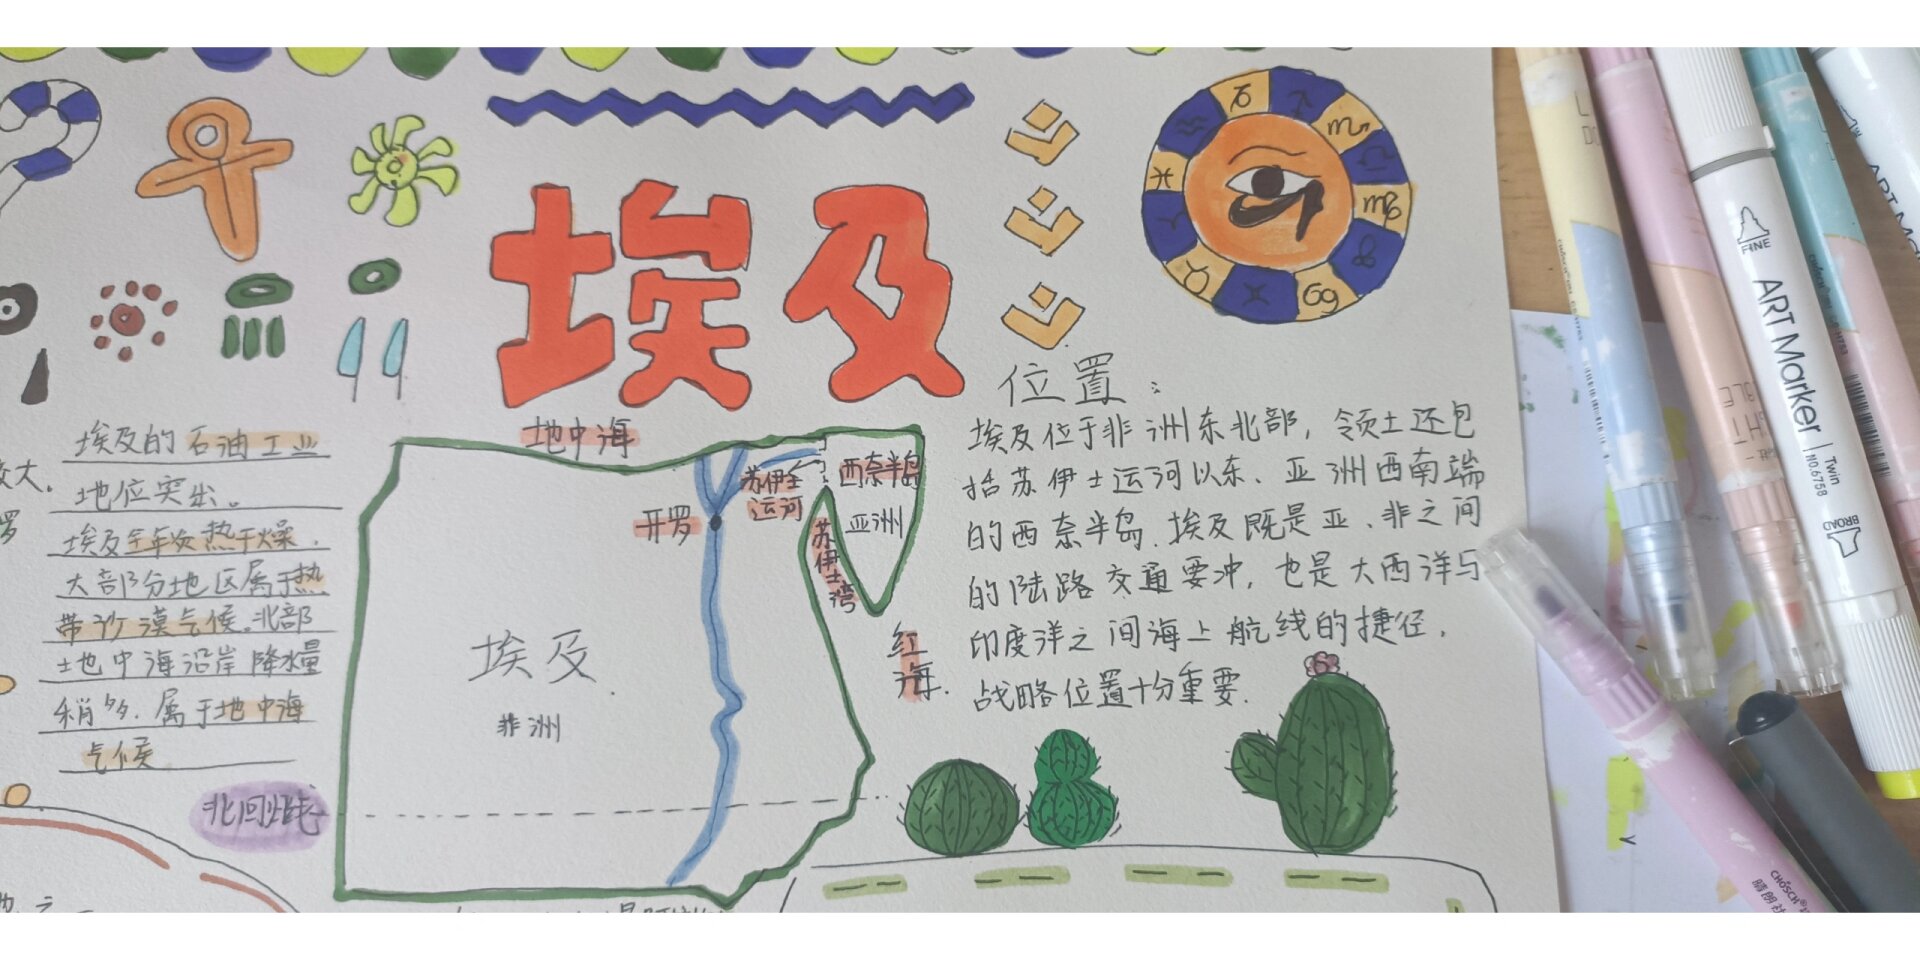 埃及
位置：
埃及位于非洲东北部，领土还包
括苏伊士运河以东、亚洲西南端
的西奈半岛.埃及既是亚、非之间
的陆路交通要冲，也是大西洋与
印度洋之间海上航线的捷径，
战略位置十分重要.
较大.
埃及的石油工业
地位突出。
埃及全年炎热干燥，
大部分地区属于热
带沙漠气候。北部
地中海沿岸降水量
稍多.属于地中海
气候
北回归线
地中海
苏伊士
运河
西奈半岛
亚洲
开罗
苏伊士湾
红海.
埃及
非洲
FINE
ART Marker
Twin
NO.6758
BROAD
CHOSCH®